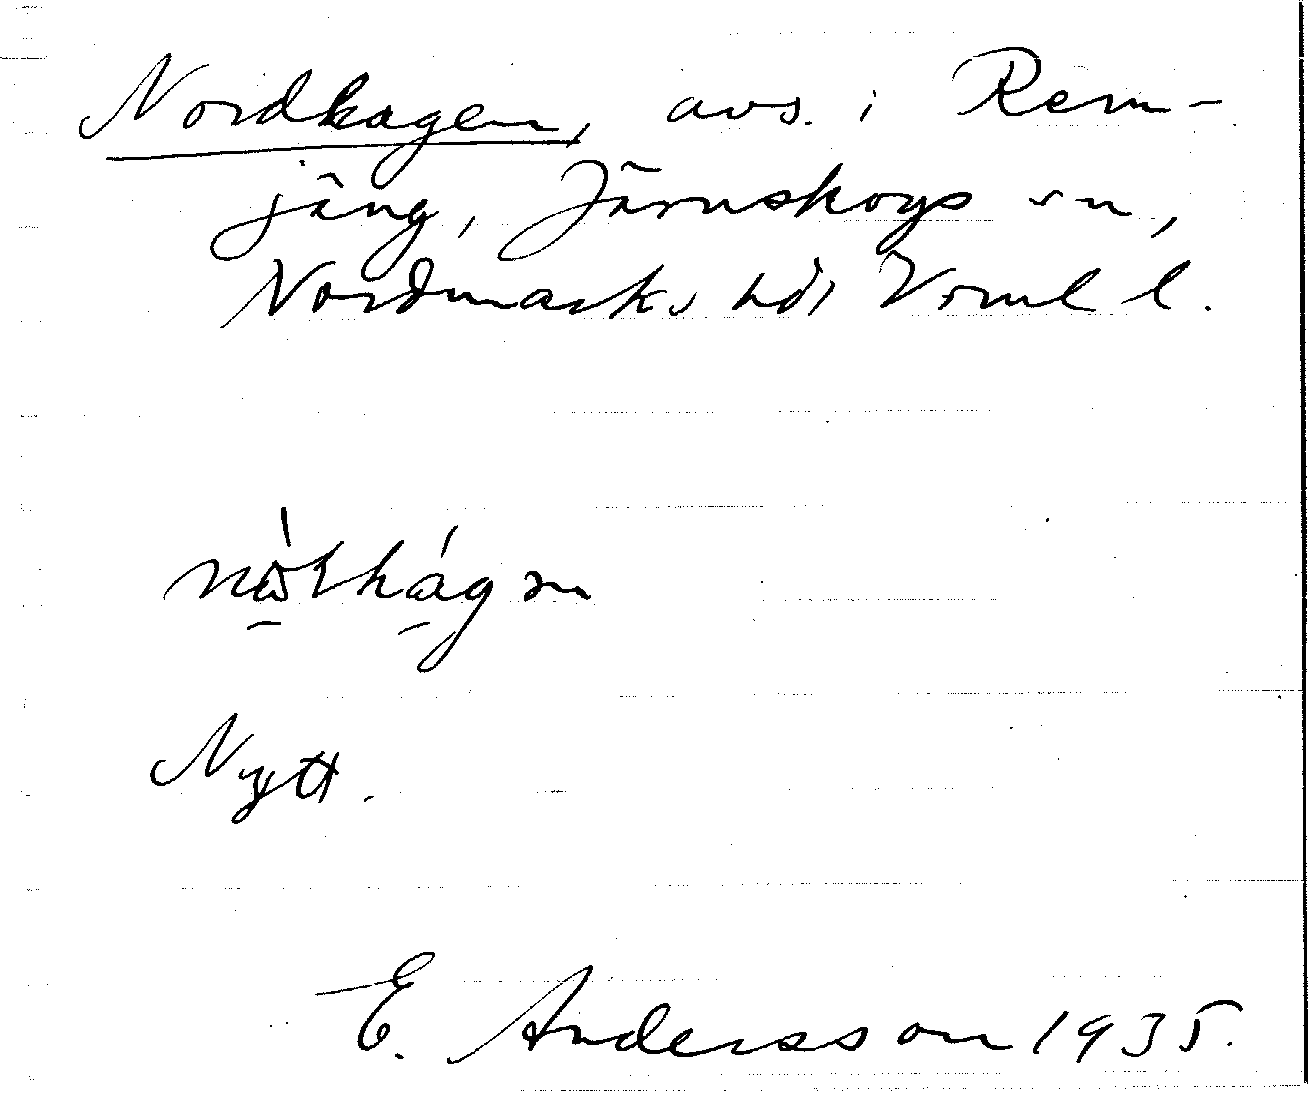 Nordhagen, avs. i Rem-
jäng, Järnskogs sn,
Nordmarks hd, Vrml l.
Nytt.
E. Andersson 1935.